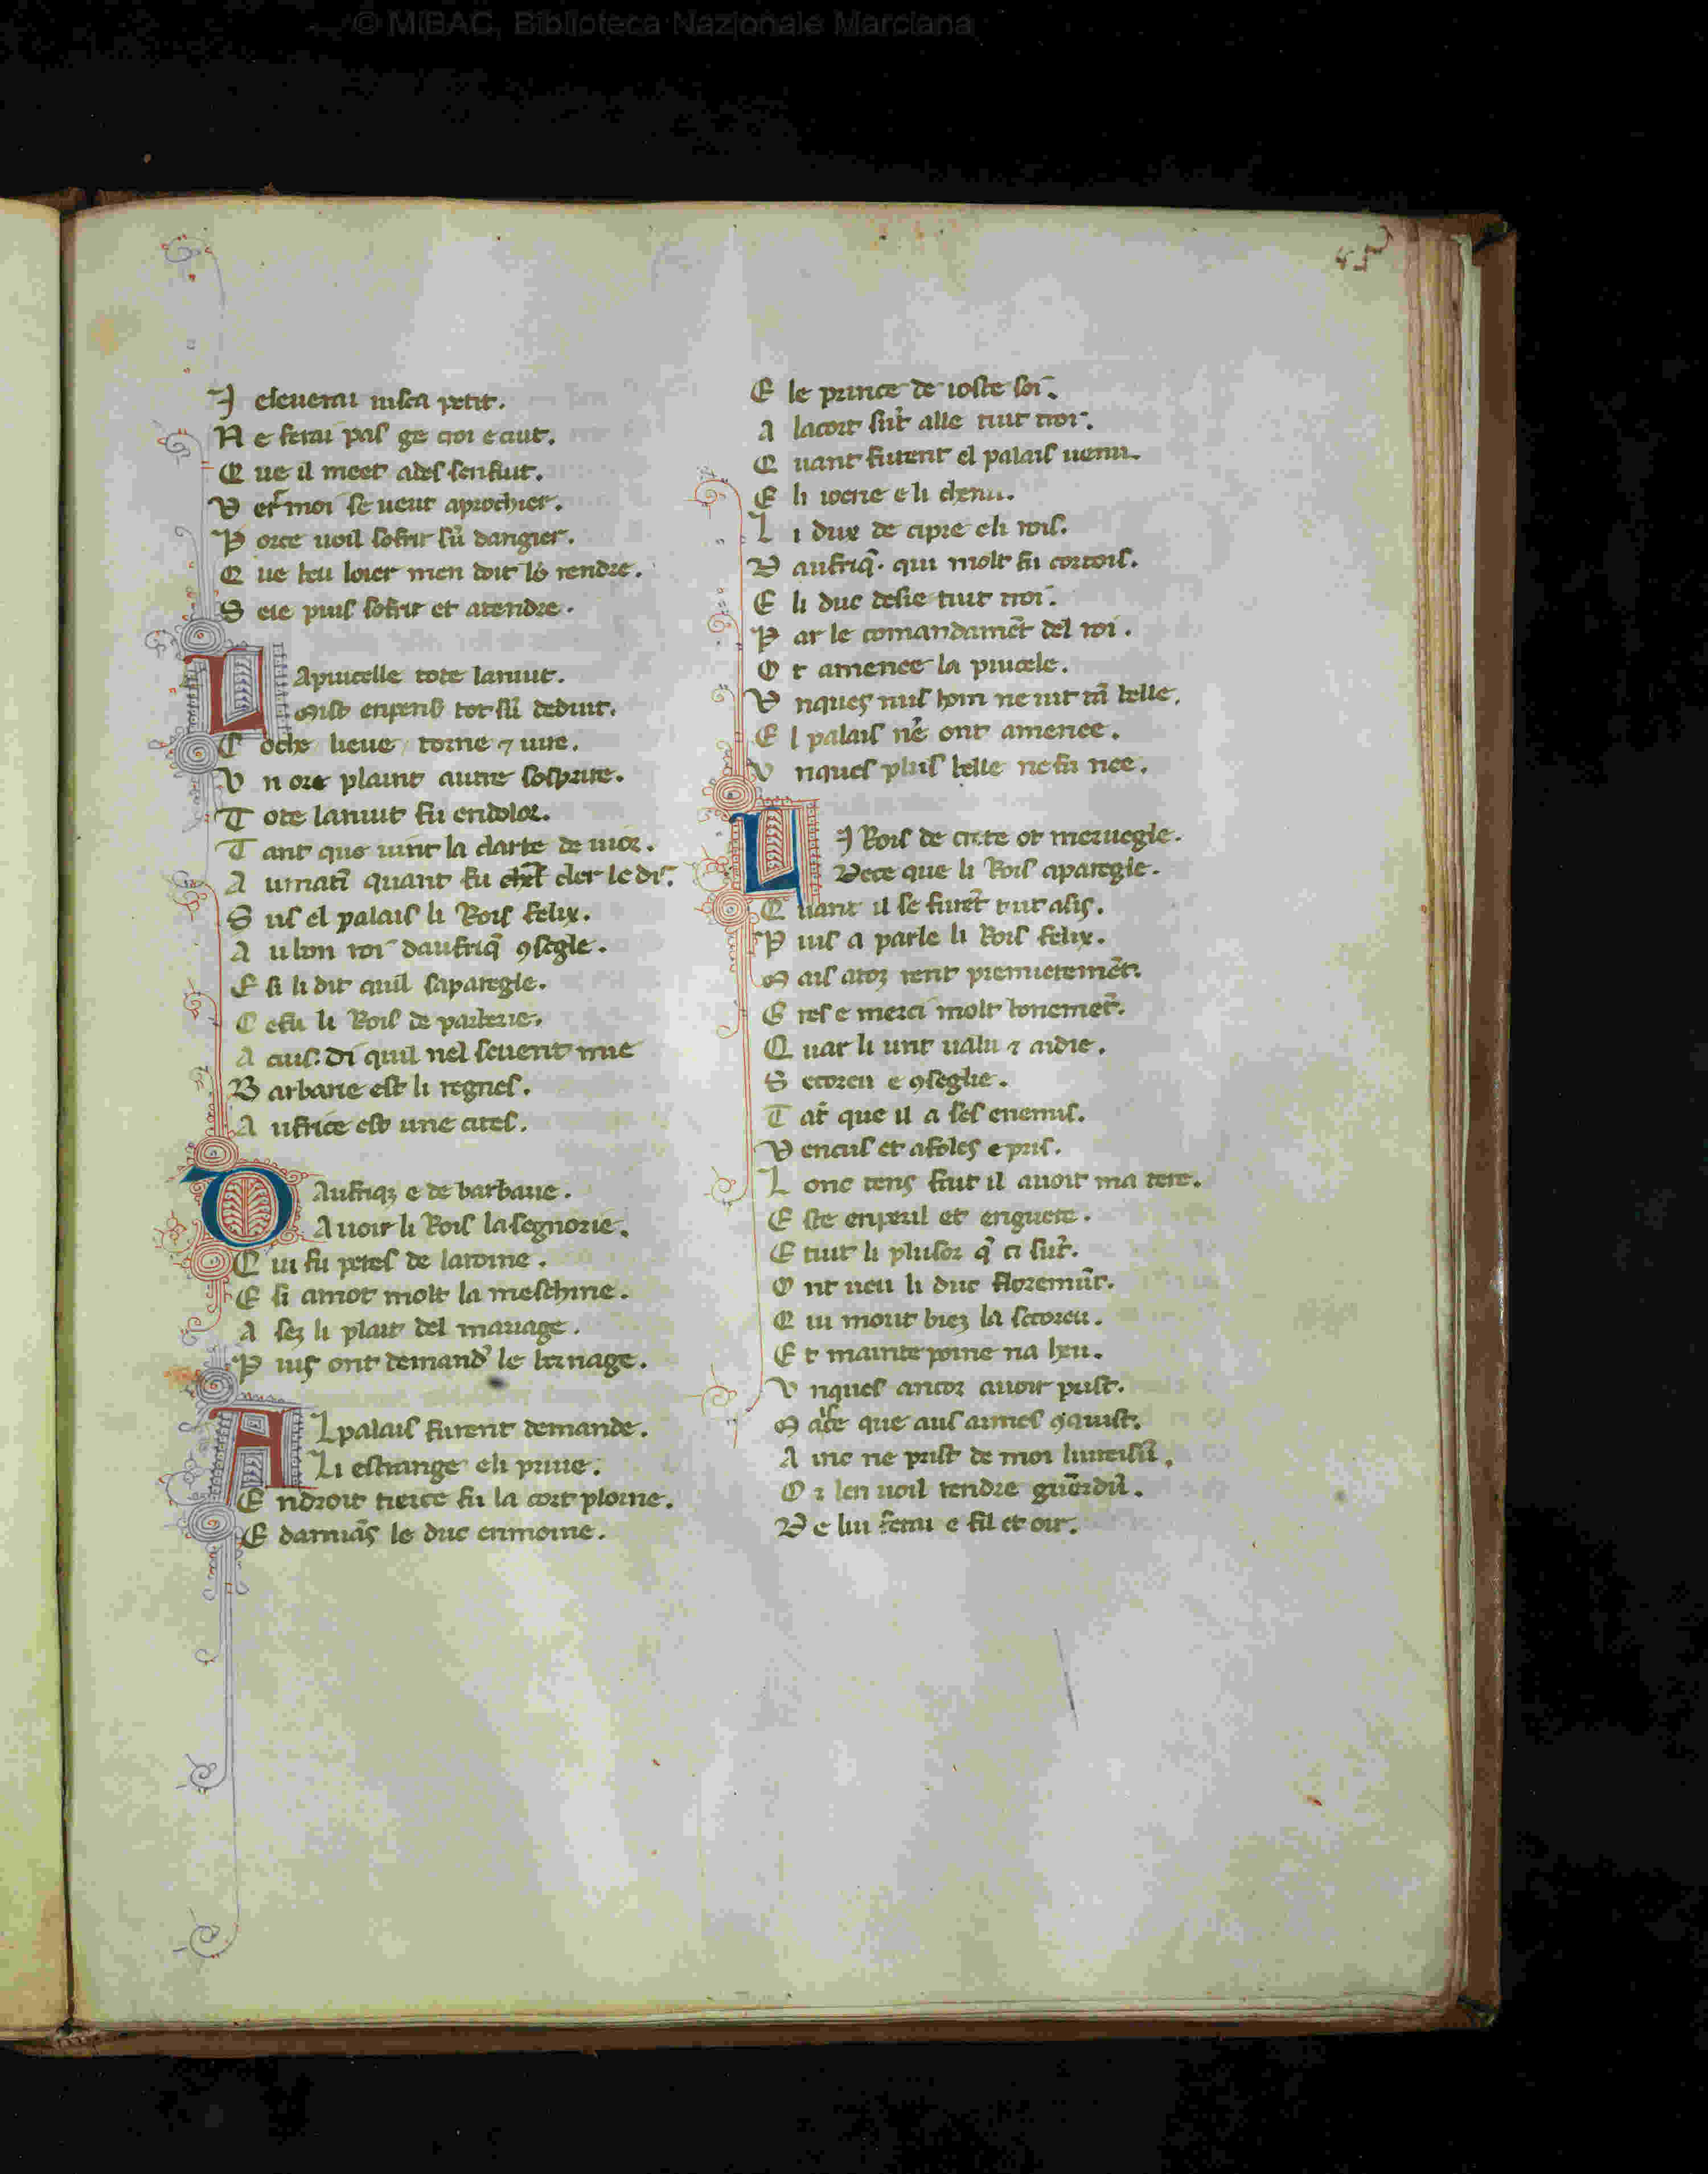 © MiBAC, Biblioteca Nazionale Marciana
45
J eleuerai iusca petit.
N e ferai pas ge qoi ecuit.
Q ue il meet ades senfuit.
V er͛ moi se ueut aprochier.
P orce uoil sofrir sū dangier.
Q ue beu loier men doit lo rendre.
S eie puis sofrir et atendre.
L Apucelle tote lanuit.
Mist enpens tot sū deduit.
C oche lieue torne ⁊ uire.
V n ore plaint autre sospire.
T ote lanuit fu endolor.
T ant que uint la clarte de iùor.
A umatī quant fu cler le di.
S us el palais li Rois felix.
A ubon roi daufriq̄ ꝯsegle.
E si li dit quil saparegle.
C efu li Rois de parberie.
A cus. di quil nel seuent mie
B arbarie est li regnes.
A ufrice est une cites.
D Aufriqꝫ e de barbarie.
Auoit li Rois lasegnorie.
Q ui fu peres de laroine.
E si amot molt la meschine.
A sez li plait del mariage.
P uis ont demand᾽ le barnage.
A L palais furent demande.
Li estrange eli priue.
E ndroit tierce fu la cort ploine.
E damiās le duc enmoine.
E le prince de ioste soi.
A lacort sūt alle tuit troi.
Q uant furent el palais uenu.
E li ioene e li chenu.
L i dux de cipre eli rois.
D aufriq̄. qui molt fu cortois.
E li duc desie tuit troi.
P ar le comandamēt del roi.
O t amenee la pucele.
V nques nus hom ne uit tā belle.
E l palais nē ont amenee.
V nques plus belle nefu nee.
L J Rois de crete ot meruegle.
Dece que li Rois aparegle.
Q uant il se furēt tut asis.
P uis a parle li Rois felix.
M ais atoz rent premieremēt.
G res e merci molt bonemēt.
Q uar li unt ualu ⁊ aidie.
S ecoreu e ꝯseglie.
T āt que il a ses enemis.
V encus et afoles e pris.
L onc tens fait il auoit ma tere.
E ste enperil et enguere.
E tuit li plusor q̄ ci sūt.
O nt ueu li duc floremūt.
Q ui mout biez la secoreu.
E t mainte poine na heu.
V nques ancor auoir prist.
M aſte que aus armes ꝯquist.
A inc ne prist de moi liureisū.
O r len uoil rendre guērdū.
D e lui ferai e fil et oir.